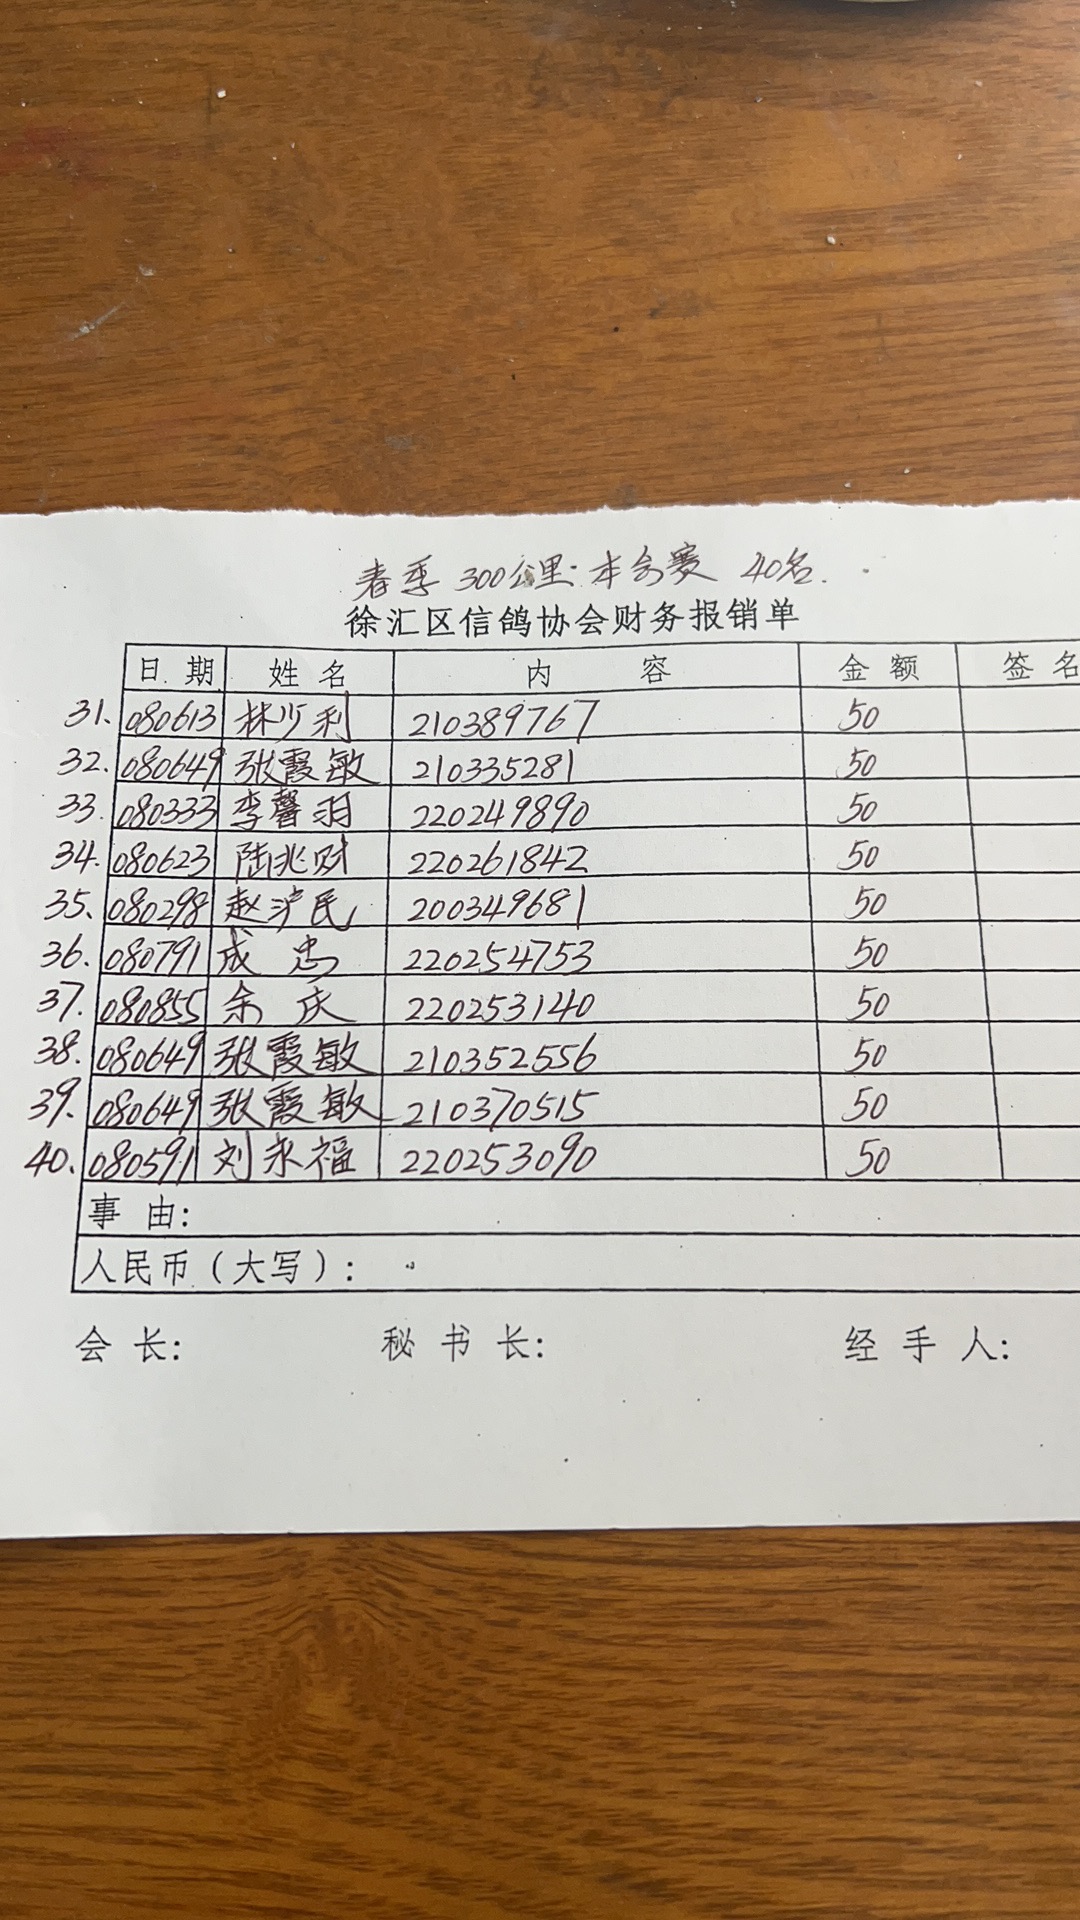 春季 300公里·本会赛 40名.
徐汇区信鸽协会财务报销单
日 期 姓 名 内 容 金 额 签 名
31. 080613 林少利 210389767 50
32. 080649 张霞敏 210335281 50
33. 080333 李馨羽 220249890 50
34. 080623 陆兆财 220261842 50
35、 080298 赵沪民 200349681 50
36. 080791 成 忠 220254753 50
37. 080855 余 庆 220253140 50
38. 080649 张霞敏 210352556 50
39. 080649 张霞敏 210370515 50
40. 080591 刘永福 220253090 50
事 由:
人民币(大写):
会 长: 秘 书 长: 经 手 人: